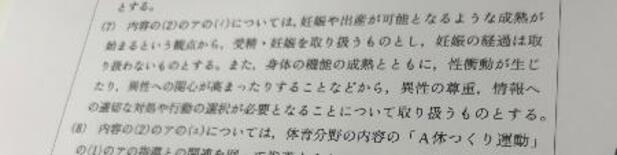 とする。
(7) 内容の(2)のアの(イ)については，妊娠や出産が可能となるような成熟が
始まるという観点から，受精・妊娠を取り扱うものとし，妊娠の経過は取
り扱わないものとする。また，身体の機能の成熟とともに，性衝動が生じ
たり，異性への関心が高まったりすることなどから，異性の尊重，情報へ
の適切な対処や行動の選択が必要となることについて取り扱うものとする。
(8) 内容の(2)のアの(エ)については，体育分野の内容の「A体つくり運動」
の(1)のアの指導との関連を図って指導